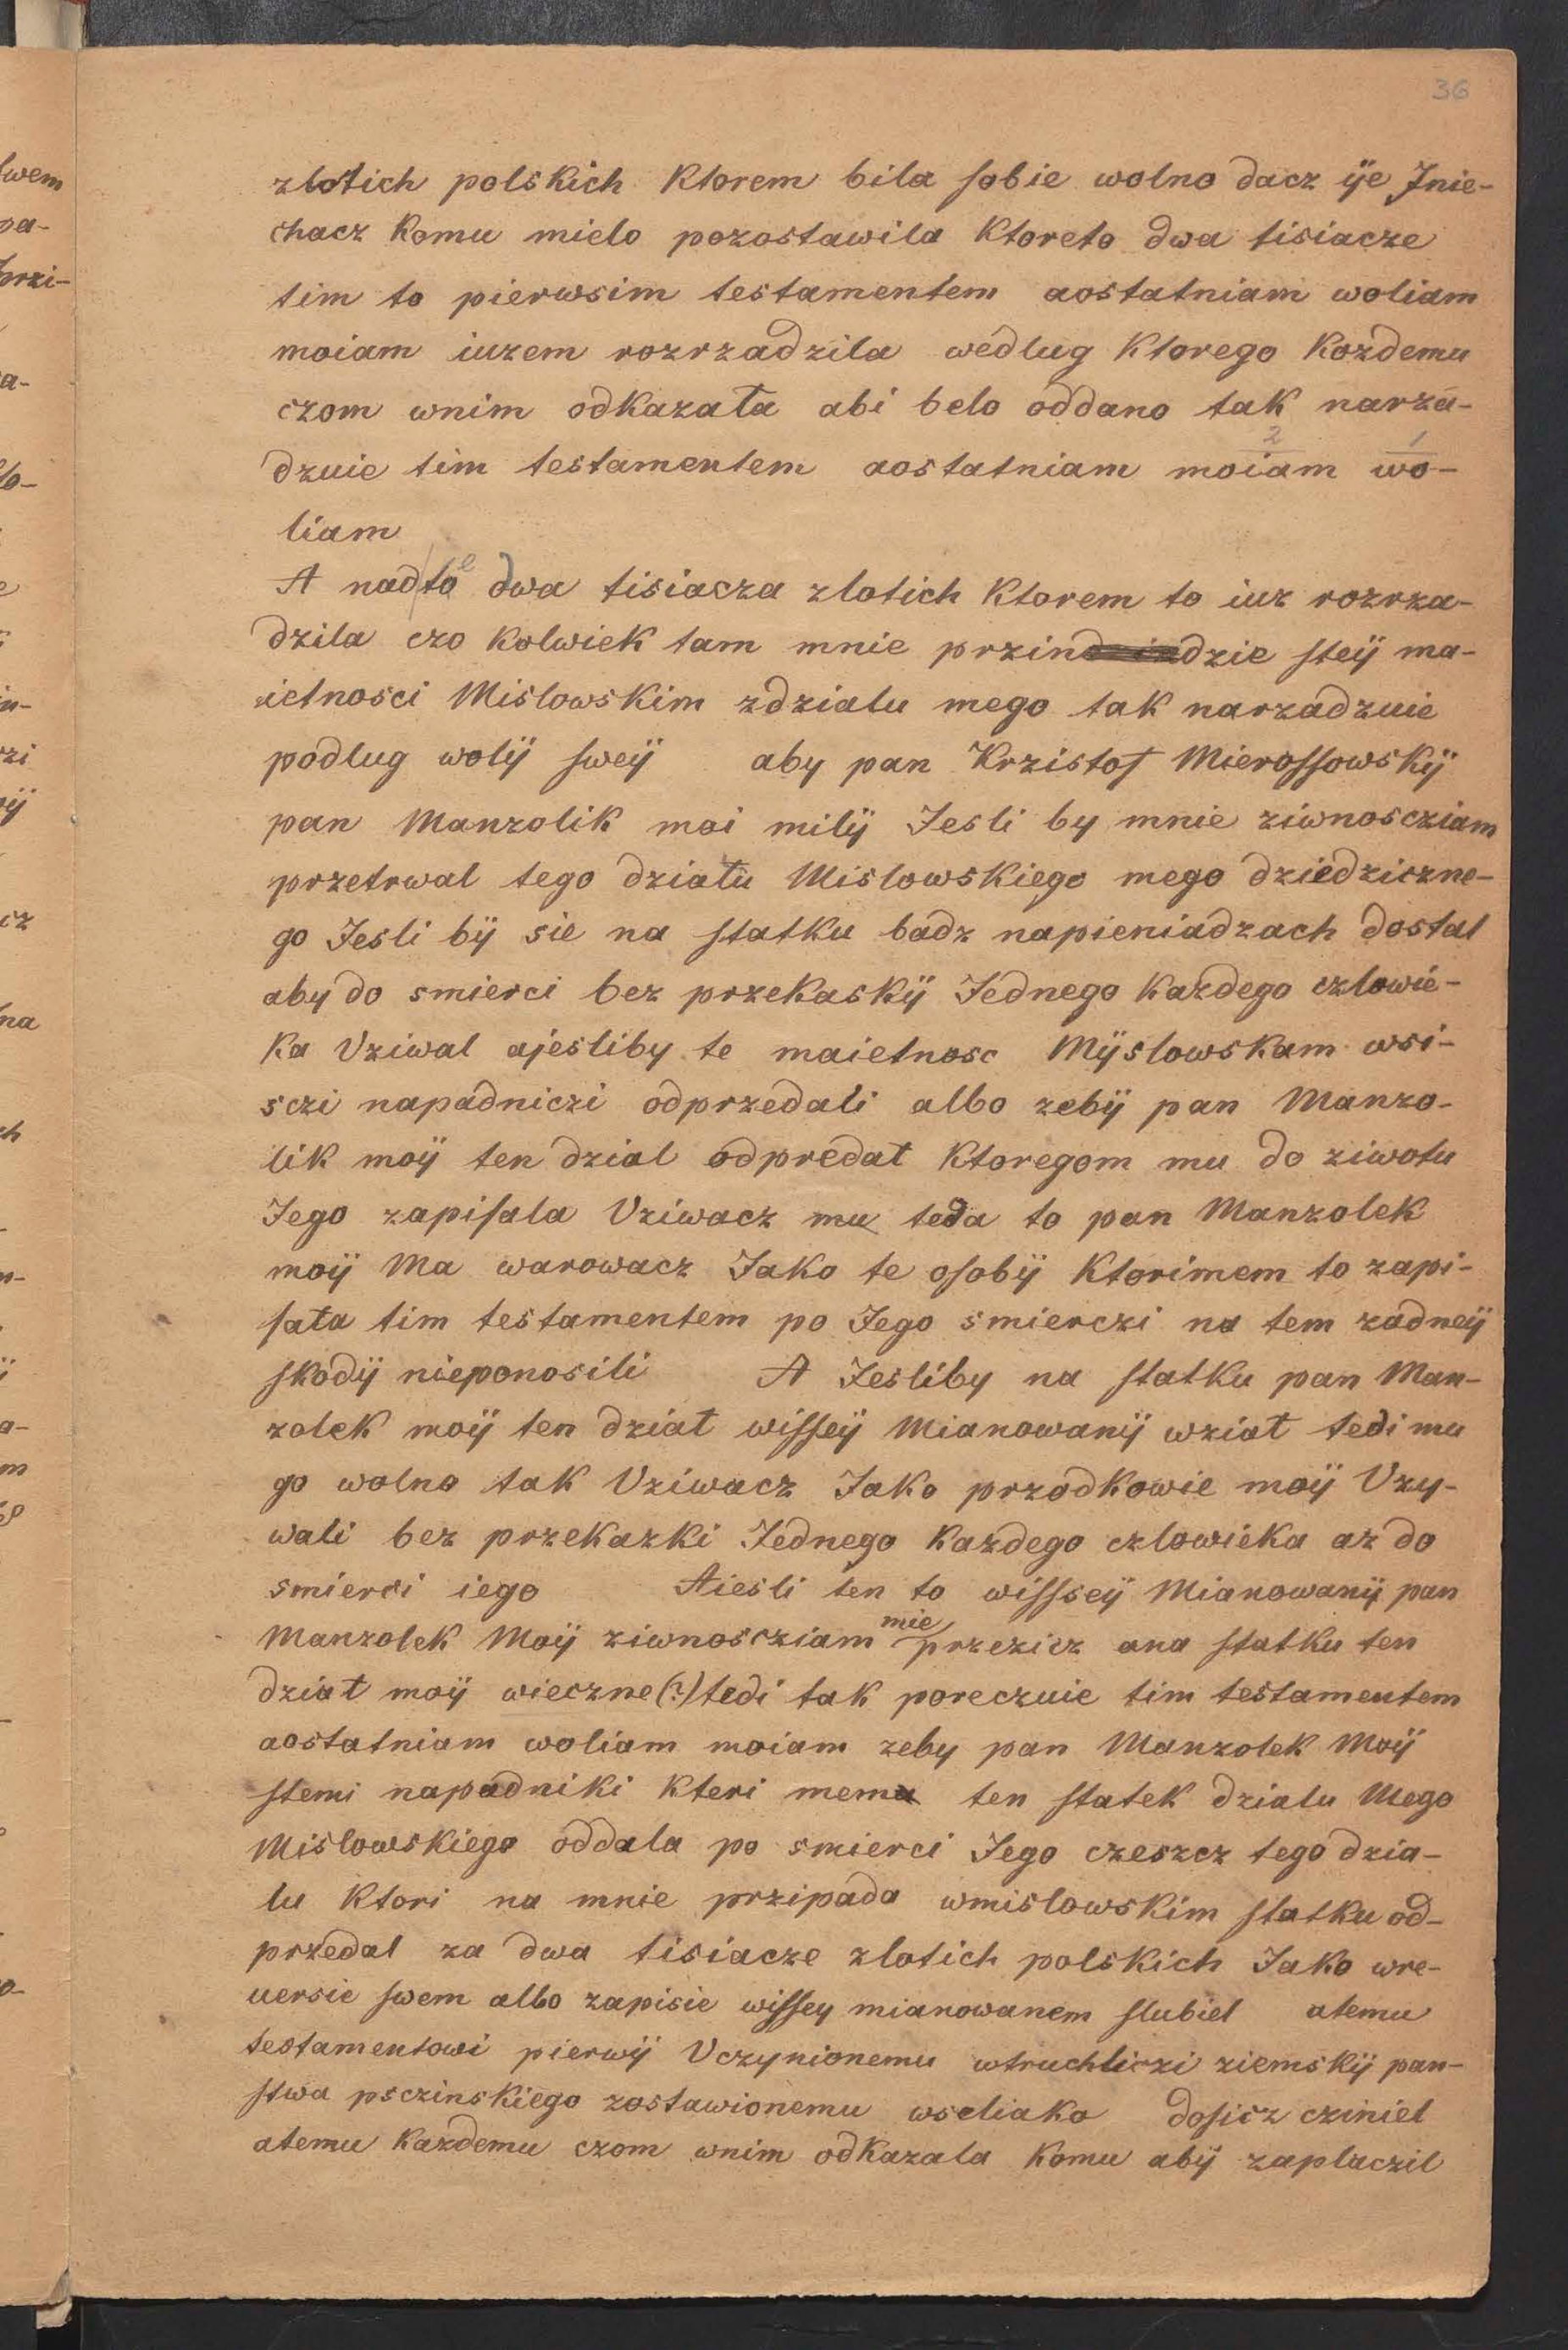 36
zlotich polskich Ktorem bila sobie wolno dacz ÿe Jnie-
chacz Komu mielo pozostawila Ktoreto dwa tisiacze
tim to pierwsim testamentem aostatniam woliam
moiam iuzem rozrzadzila wedlug Ktorego Kozdemu
czom wnim odkazała abi belo oddano tak narza-
2 1
dzuie tim testamentem aostatniam moiam wo-
liam
A nad to e dwa tisiacza zlotich Ktorem to iuz rozrza-
dzila czo Kolwiek tam mnie przindzie steÿ ma-
ietnosci Mislowskim zdzialu mego tak narzadzuie
podlug wolÿ sweÿ aby pan Krzistof Mierossowskÿ
pan Manzolik moi milÿ Jesli by mnie ziwnoscziam
przetrwal tego działu Mislowskiego mego dziedziczne-
go Jesli bÿ sie na statku badz napieniadzach dostal
aby do smierci bez przekaskÿ Jednego Kazdego czlowie-
ka Vziwal ajesliby te maietnosc Mÿslowskam wsi-
sczi napadniczi odprzedali albo zebÿ pan Manzo-
lik moÿ ten dzial odpredał Ktoregom mu do ziwotu
Jego zapisala Vziwacz mu teda to pan Manzolek
moÿ Ma warowacz Jako te osobÿ Ktorimem to zapi-
sała tim testamentem po Jego smierczi na tem zadneÿ
skodÿ nieponosili A Jesliby na statku pan Man-
zolek moÿ ten dział wisseÿ Mianowanÿ wział tedi mu
go wolno tak Vziwacz Jako przodkowie moÿ Vzy-
wali bez przekazki Jednego Kazdego czlowieka az do
smierci iego Aiesli ten to wissseÿ Mianowanÿ pan
Manzolek Moÿ ziwnoscziam mie przezicz ana statku ten
dział moÿ wieczne(?) tedi tak poreczuie tim testamentem
aostatniam woliam moiam zeby pan Manzolek Moÿ
stemi napadniki Kteri memu ten statek dzialu Mego
Mislowskiego oddala po smierci Jego czeszcz tego dzia-
lu Ktori na mnie przipada wmislowskim statku od-
przedal za dwa tisiacze zlotich polskich Jako wre-
uersie swem albo zapisie wissey mianowanem slubiel atemu
testamentowi pierwÿ Vczynionemu wtruchliczi ziemskÿ pan-
stwa psczinskiego zostawionemu wseliako dosicz cziniel
atemu Kazdemu czom wnim odkazala Komu abÿ zaplaczil